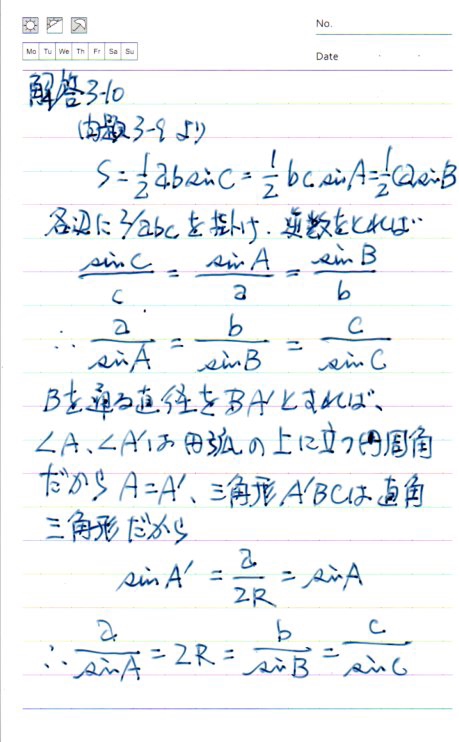 No.
Mo Tu We Th Fr Sa Su
Date
解答3-10
問題3-9より
S = 1/2 ab sin C = 1/2 bc sin A = 1/2 ca sin B
各辺に2/abcを掛け、逆数をとれば
sin C / c = sin A / a = sin B / b
∴ a / sin A = b / sin B = c / sin C
Bを通る直径をBA'とすれば、
∠A、∠A'は円弧の上に立つ円周角
だから A=A'、三角形A'BCは直角
三角形だから
sin A' = a / 2R = sin A
∴ a / sin A = 2R = b / sin B = c / sin C